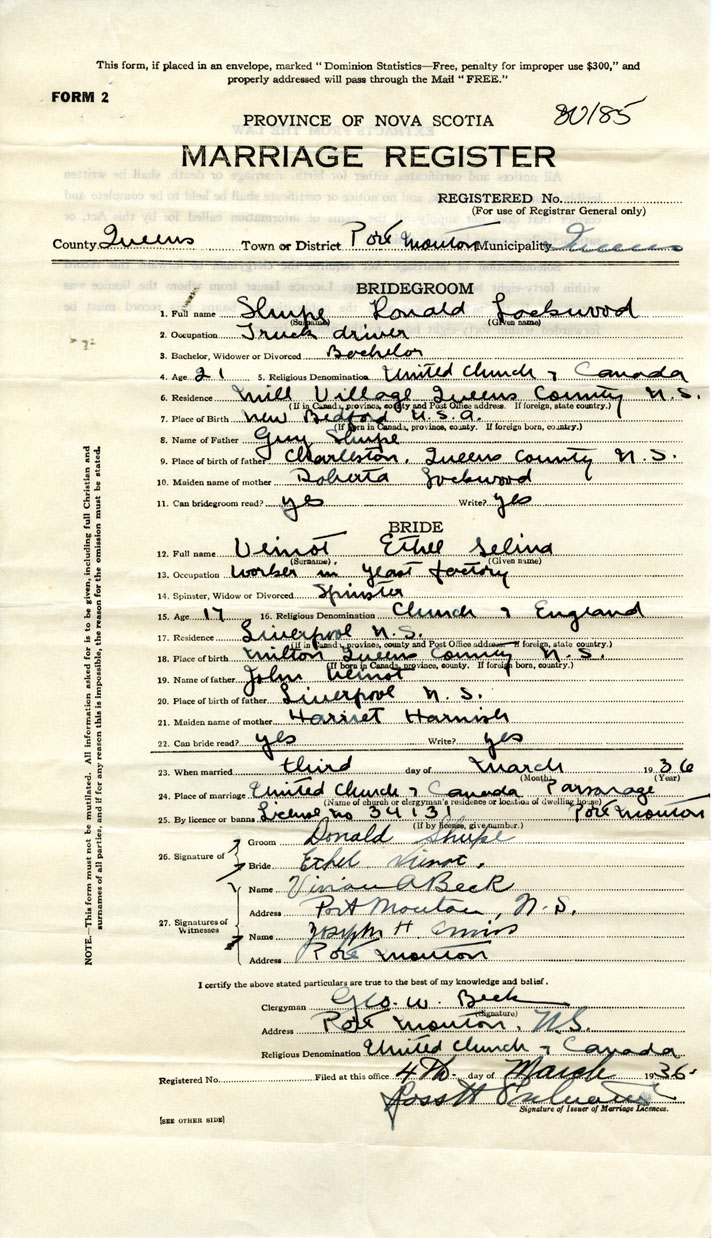 This form, if placed in an envelope, marked “ Dominion Statistics—Free, penalty for improper use $300,” and
properly addressed will pass through the Mail “ FREE.”
FORM 2
80/85
PROVINCE OF NOVA SCOTIA
MARRIAGE REGISTER
REGISTERED No.
(For use of Registrar General only)
County Queens Town or District Port Mouton Municipality Queens
BRIDEGROOM
1. Full name Shupe Ronald Lockwood
(Surname) (Given name)
2. Occupation Truck driver
3. Bachelor, Widower or Divorced Bachelor
4. Age 21 5. Religious Denomination United Church of Canada
6. Residence Mill Village Queens County N.S.
(If in Canada, province, county and Post Office address. If foreign, state country.)
7. Place of Birth New Bedford U.S.A.
(If born in Canada, province, county. If foreign born, country.)
8. Name of Father Guy Shupe
9. Place of birth of father Charleston, Queens County N.S.
10. Maiden name of mother Roberta Lockwood
11. Can bridegroom read? yes Write? yes
BRIDE
12. Full name Veinot Ethel Selina
(Surname) (Given name)
13. Occupation Worker in yeast factory
14. Spinster, Widow or Divorced Spinster
15. Age 17 16. Religious Denomination Church of England
17. Residence Liverpool N.S.
(If in Canada, province, county and Post Office address. If foreign, state country.)
18. Place of birth Milton Queens County N.S.
(If born in Canada, province, county. If foreign born, country.)
19. Name of father John Veinot
20. Place of birth of father Liverpool N.S.
21. Maiden name of mother Harriet Harnish
22. Can bride read? yes Write? yes
23. When married third day of March 1936
(Month) (Year)
24. Place of marriage United Church of Canada Parsonage
(Name of church or clergyman's residence or location of dwelling house)
25. By licence or banns License no 34131 Port Mouton
(If by licence, give number.)
26. Signature of
Groom Donald Shupe
Bride Ethel Vienot.
27. Signatures of Witnesses
Name Vivian A Beck
Address Port Mouton, N.S.
Name Joseph H.
Address Port Mouton
I certify the above stated particulars are true to the best of my knowledge and belief.
Clergyman Geo. W. Beck
(Signature)
Address Port Mouton, N.S.
Religious Denomination United Church of Canada
Registered No. Filed at this office 4th day of March 1936.
Signature of Issuer of Marriage Licences.
[SEE OTHER SIDE]
NOTE.—This form must not be mutilated. All information asked for is to be given, including full Christian and
surnames of all parties, and if for any reason this is impossible, the reason for the omission must be stated.